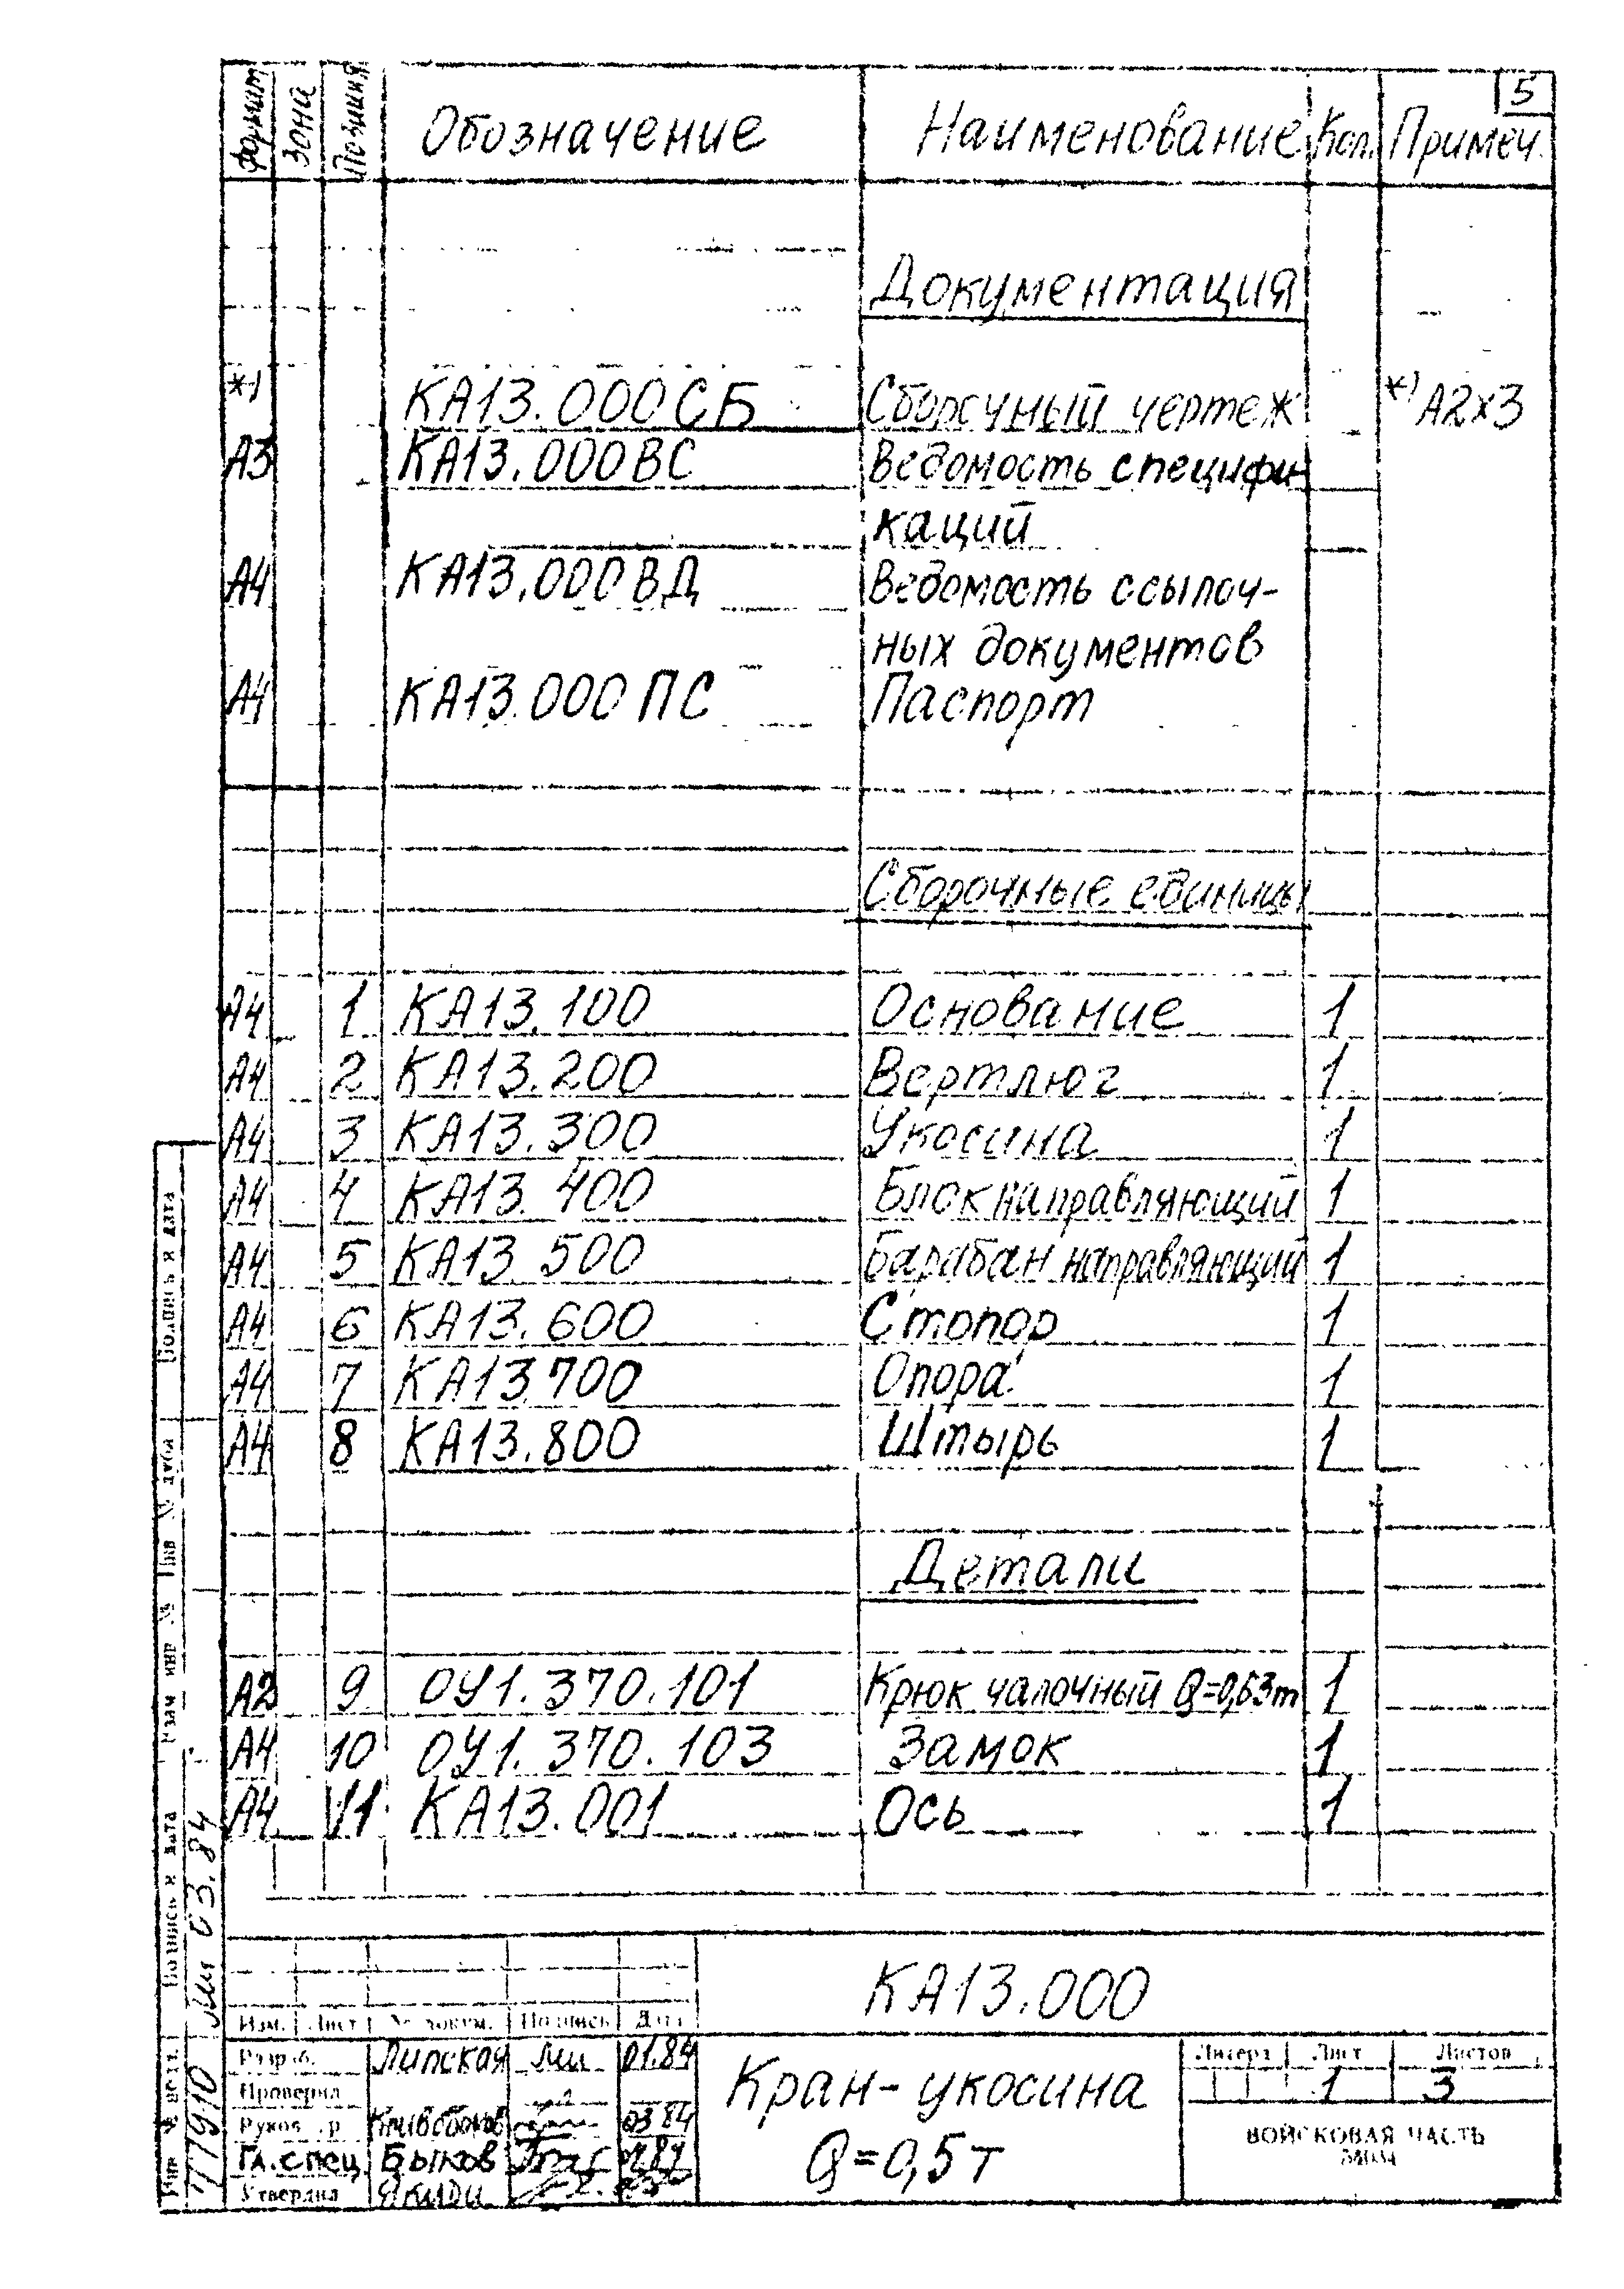 5
Формат Зона Позиция Обозначение Наименование Кол. Примеч.
Документация
*) КА13.000СБ Сборочный чертеж *) А2х3
А3 КА13.000ВС Ведомость специфи
каций
А4 КА13.000ВД Ведомость ссылоч-
ных документов
А4 КА13.000ПС Паспорт
Сборочные единицы
А4 1 КА13.100 Основание 1
А4 2 КА13.200 Вертлюг 1
А4 3 КА13.300 Укосина 1
А4 4 КА13.400 Блок направляющий 1
А4 5 КА13.500 Барабан направляющий 1
А4 6 КА13.600 Стопор 1
А4 7 КА13.700 Опора 1
А4 8 КА13.800 Штырь 1
Детали
А2 9 ОУ1.370.101 Крюк чалочный Q=0,63т 1
А4 10 ОУ1.370.103 Замок 1
А4 11 КА13.001 Ось 1
КА13.000
Изм. Лист № докум. Подпись Дата
Разраб. Липская 01.84
Проверил
Руков. 03.84
Гл.спец. Быков
Утвердил
Кран-укосина
Q=0,5т
Литера Лист Листов
1 3
ВОЙСКОВАЯ ЧАСТЬ
Подпись и дата
Инв № дубл
Взам инв №
Подпись и дата
03.84
Инв №